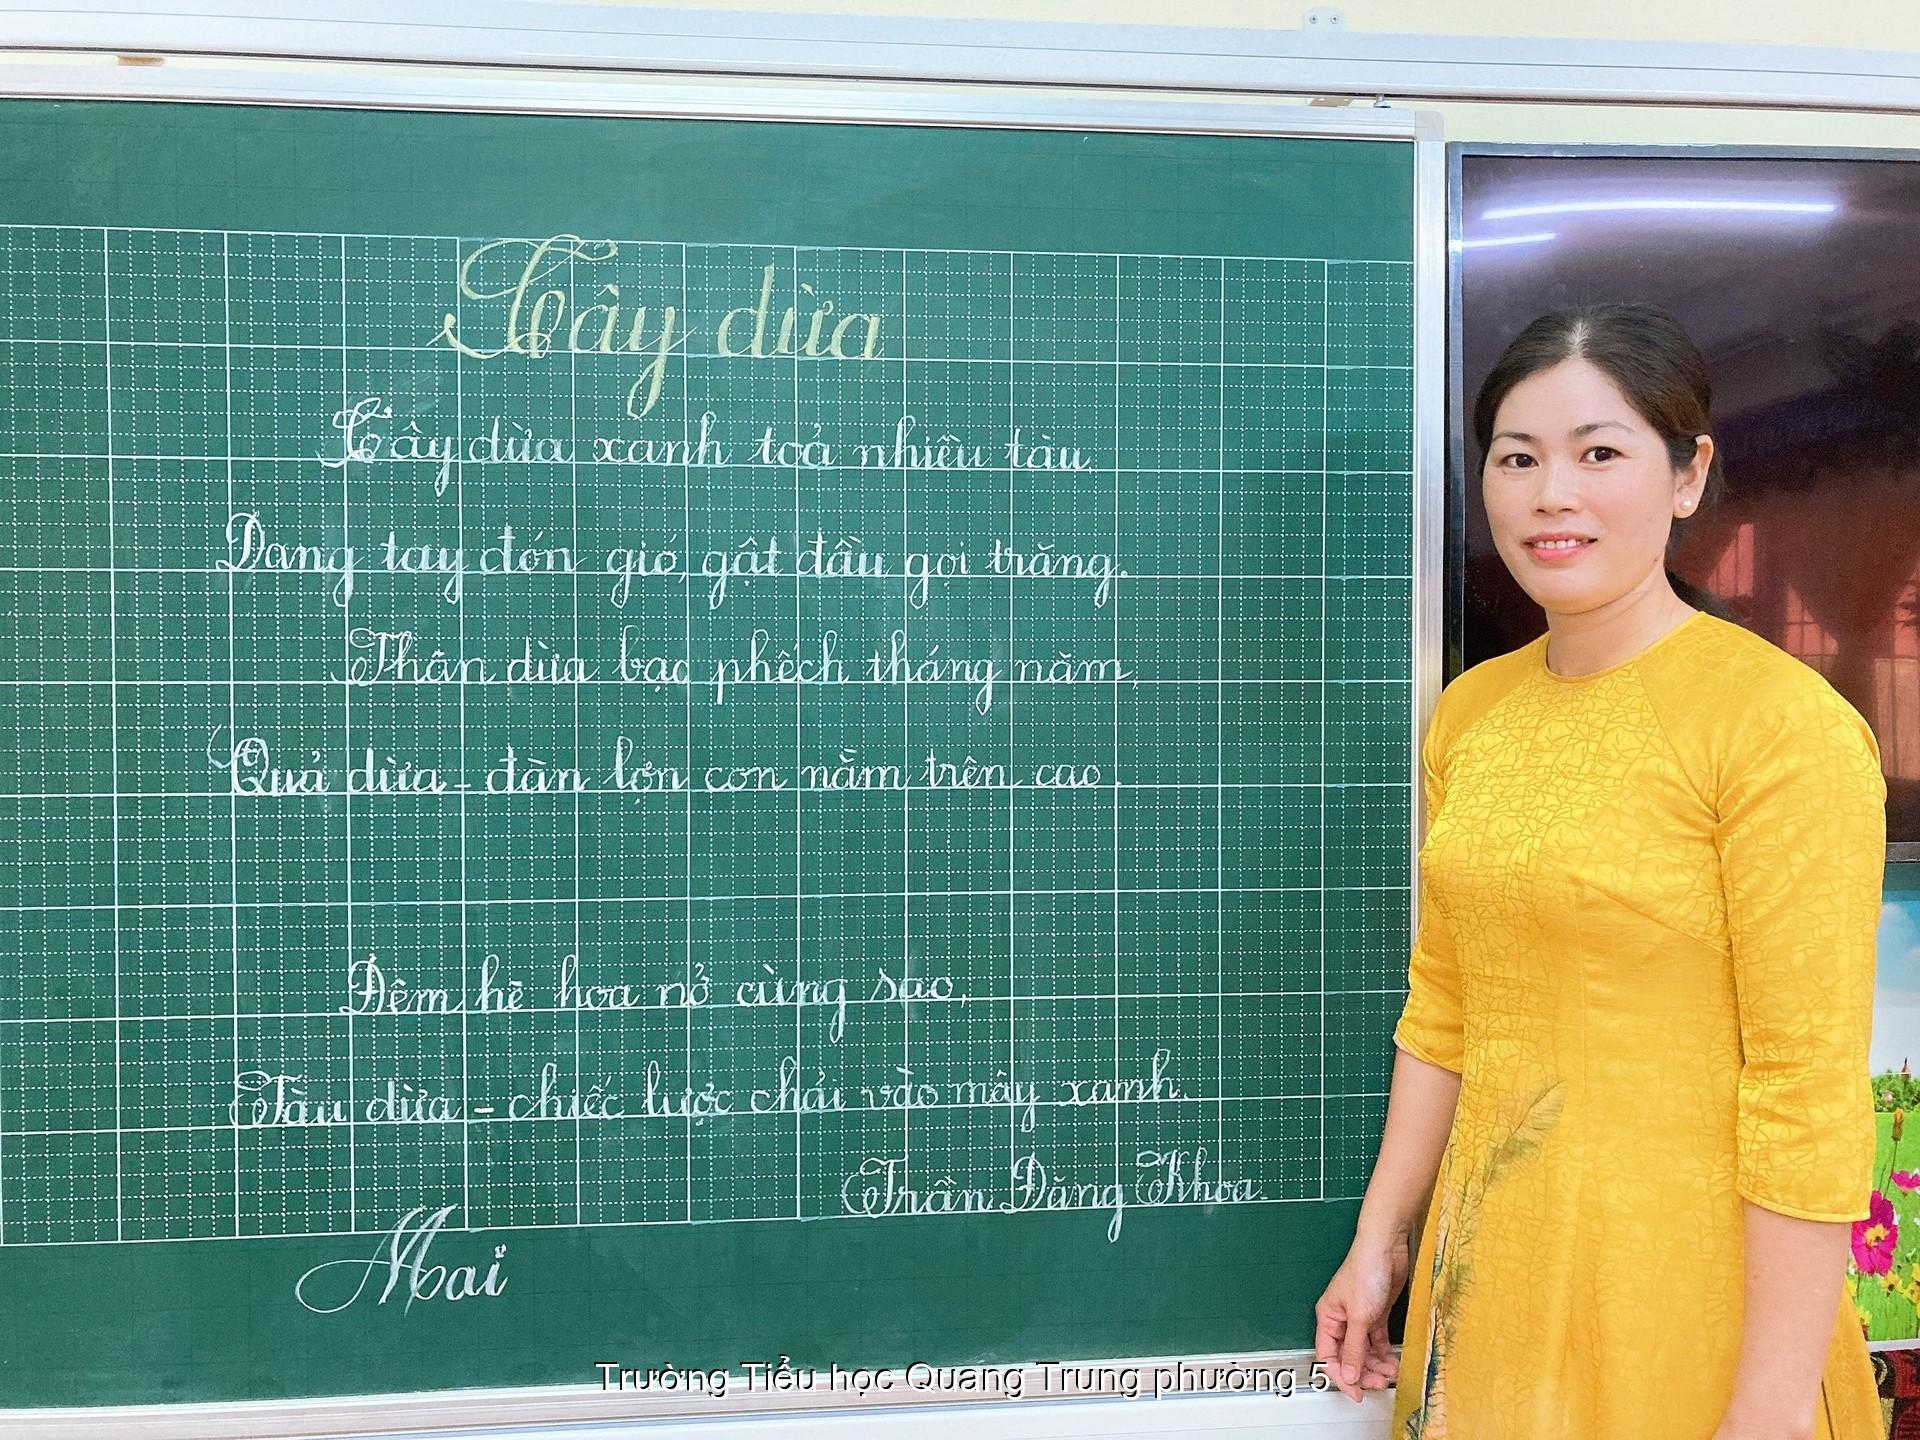 Cây dừa
Cây dừa xanh toả nhiều tàu
Dang tay đón gió, gật đầu gọi trăng.
Thân dừa bạc phếch tháng năm,
Quả dừa - đàn lợn con nằm trên cao.
Đêm hè hoa nở cùng sao,
Tàu dừa - chiếc lược chải vào mây xanh.
Trần Đăng Khoa.
Mai
Trường Tiểu học Quang Trung phường 5